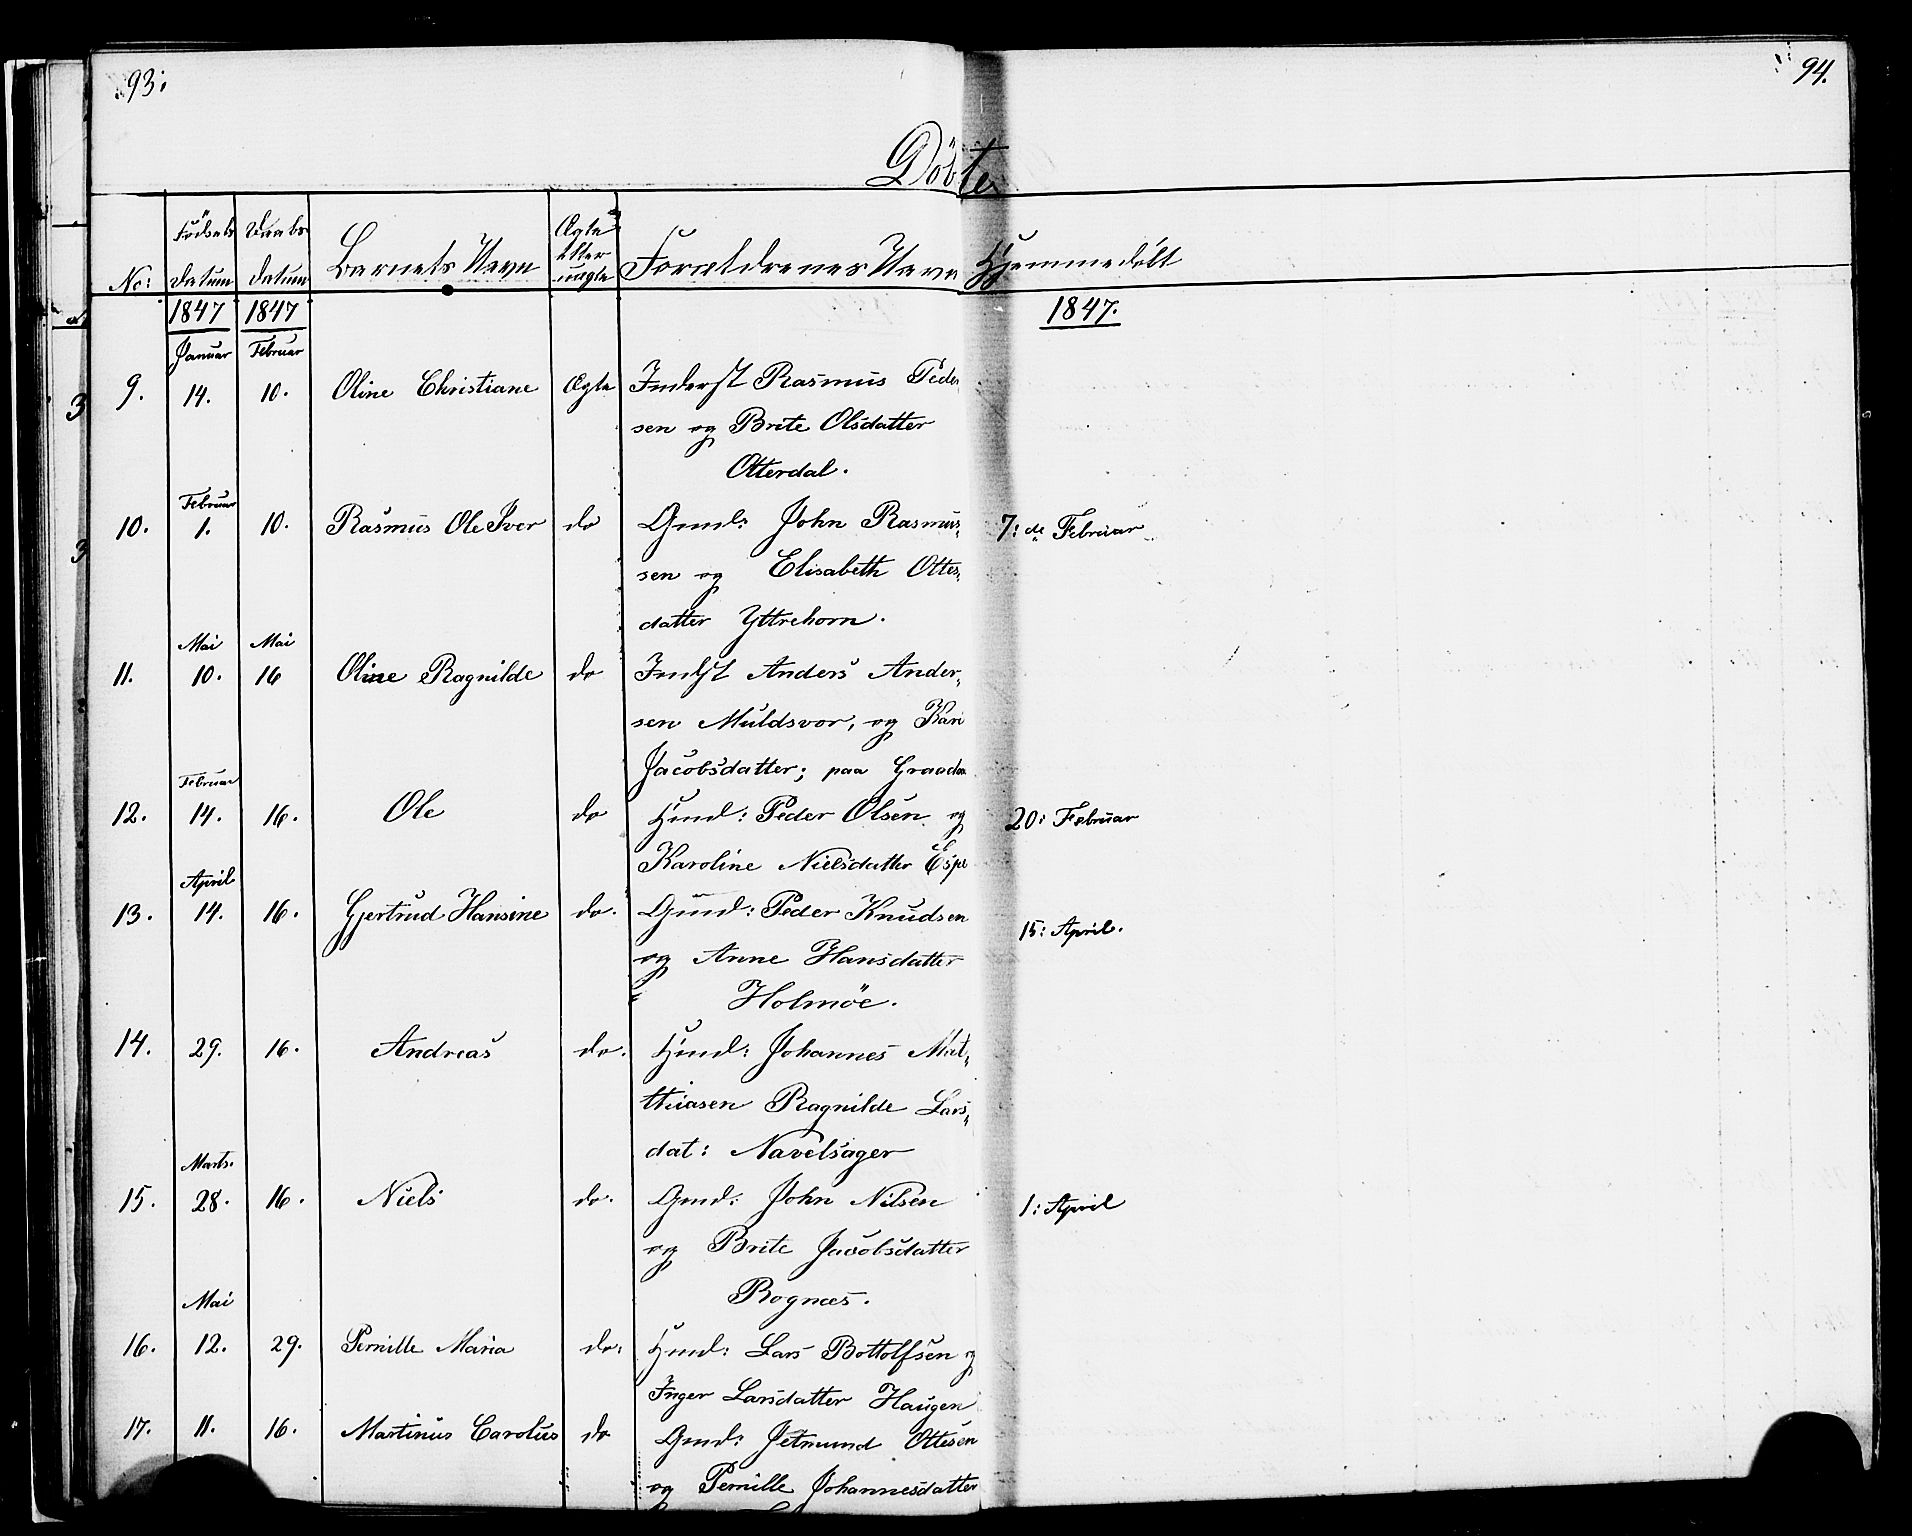 93.
94.
Döbte
No: Födsels Datum Daabs Datum Barnets Navn Ægte eller uægte Forældrenes Navn Hjemmedöbt
1847 1847 1847.
Januar Februar
9. 14. 10. Oline Christiane Ægte Inderst Rasmus Peder
sen og Brite Olsdatter
Otterdal.
Februar
10. 1. 10. Rasmus Ole Iver do Gmd: John Rasmus- 7: de Februar
sen og Elisabeth Ottes-
datter Yttrehorn.
Mai Mai
11. 10. 16 Oline Ragnilde do Indst Anders Ander-
sen Muldsvor, og Kari
Jacobsdatter; paa
Februar
12. 14. 16. Ole do Hmd: Peder Olsen og 20: Februar
Karoline Nielsdatter Espe
April
13. 14. 16. Gjertrud Hansine do. Gmd: Peder Knudsen 15: April.
og Anne Hansdatter
Holmöe.
14. 29. 16. Andreas do. Hmd: Johannes Mat-
thiasen Ragnilde Lars-
dat: Navelsager
Marts.
15. 28. 16. Niels do. Gmd: John Nilsen 1: April
og Brite Jacobsdatter
Rognæs.
Mai
16. 12. 29. Pernille Maria do: Hmd: Lars Bottolfsen og
Inger Larsdatter Haugen
17. 11. 16. Martinus Carolus do Gmd: Jetmund Ottesen
og Pernille Johannesdatter